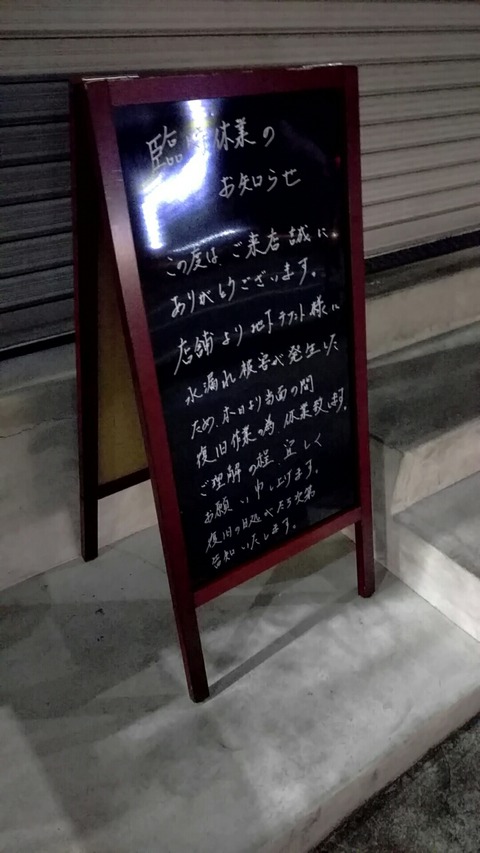 臨時休業の
お知らせ
この度は、ご来店誠に
ありがとうございます。
店舗より地下テナント様に
水漏れ被害が発生した
ため、本日より当面の間
復旧作業の為、休業致します。
ご理解の程、宜しく
お願い申し上げます。
復旧の目処がたち次第
告知いたします。